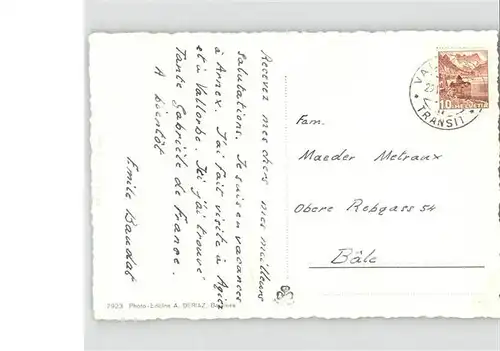 Recevez mes chers mes meilleurs
salutations. Je suis en vacances
à Arnex. J'ai fait visite à Agiez
et à Vallorbe. Ici j'ai trouvé
Tante Gabrièle de France.
A bientôt
Emile Baudat
Fam.
Maeder Metraux
Obere Rebgass 54
Bâle
10 HELVETIA
TRANSIT
7923 Photo-Edition A. DERIAZ,